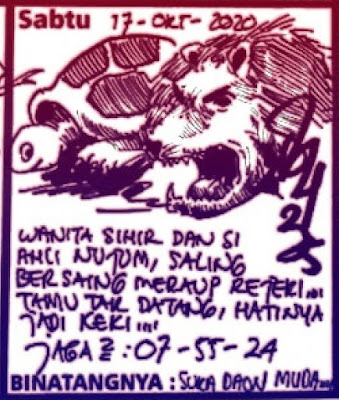 Sabtu 17-OKT-2020
WANITA SIHIR DAN SI
AHLI NUJUM, SALING
BERSAING MERAUP REJEKI...
TAMU TAK DATANG, HATINYA
JADI KEKI...
JAGA2 : 07-55-24
BINATANGNYA : SUKA DAUN MUDA...